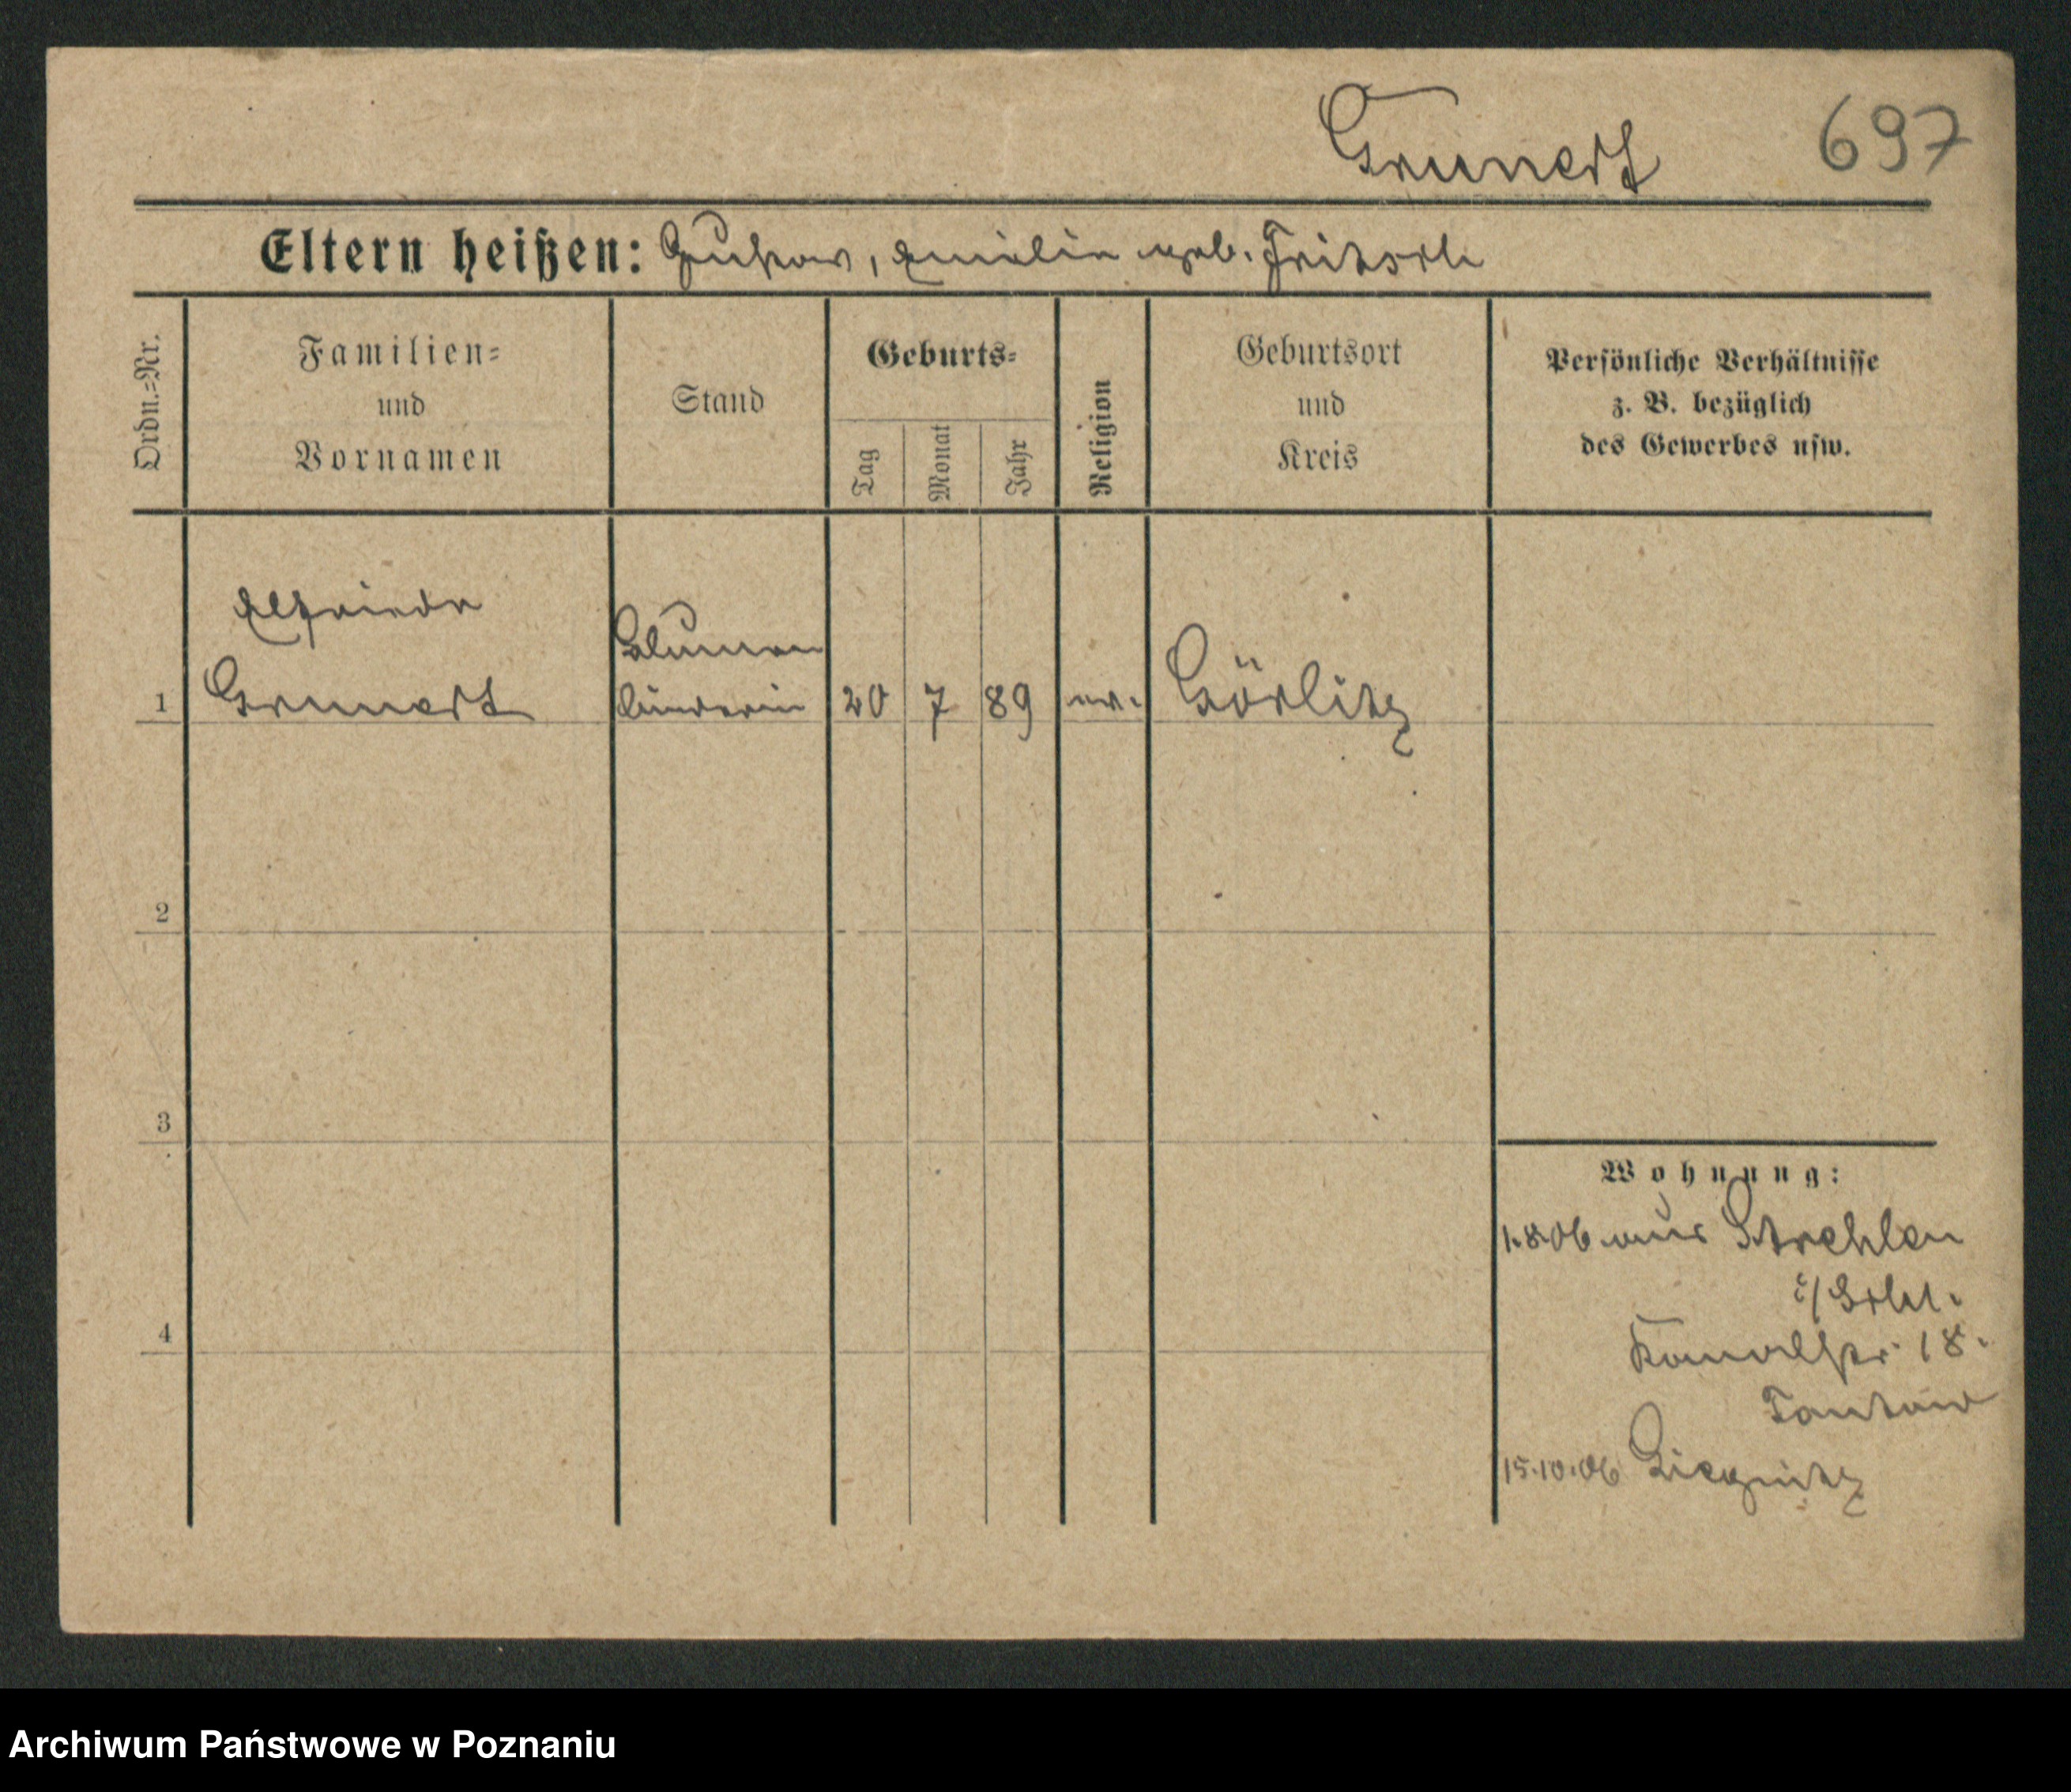 Grunert 697
Eltern heißen: Gustav, Emilie geb. Fritsch
Ordn.-Nr.
Familien-
und
Vornamen
Stand
Geburts-
Tag
Monat
Jahr
Religion
Geburtsort
und
Kreis
Persönliche Verhältnisse
z. B. bezüglich
des Gewerbes usw.
Elfriede
Blumen
1 Grunert binderin 20 7 89 ev. Görlitz
2
3
4
Wohnung:
1.8.06 aus Strehlen
i/Schl.
18.
15.10.06 Liegnitz
Archiwum Państwowe w Poznaniu